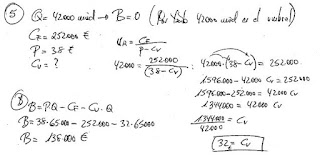 5 Q= 42000 unid → B=0 (Por tanto 42000 unid es el umbral)
CF = 252.000 €
P = 38 €
Cv = ?
UR = CF / P - Cv
42000 = 252.000 / (38 - Cv)
42000·(38 - Cv) = 252.000
1596.000 - 42000 Cv = 252.000
1596.000 - 252.000 = 42000 Cv
1344000 = 42000 Cv
1344000 / 42000 = Cv
32 = Cv
B = PQ - CF - Cv·Q
B = 38·65000 - 252000 - 32·65000
B = 138.000 €